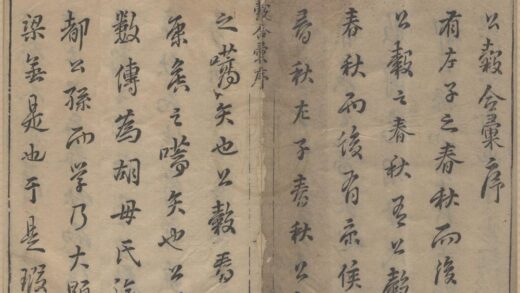 公穀合彙序
有左子之春秋而後
公穀之春秋有公穀
春秋而後有康侯
春秋左子春秋公
穀合彙序
之嚆矢也公穀春
康侯之嚆矢也公
數傳為胡毋氏
都公孫而学乃大顯
梁無是也于是瑕